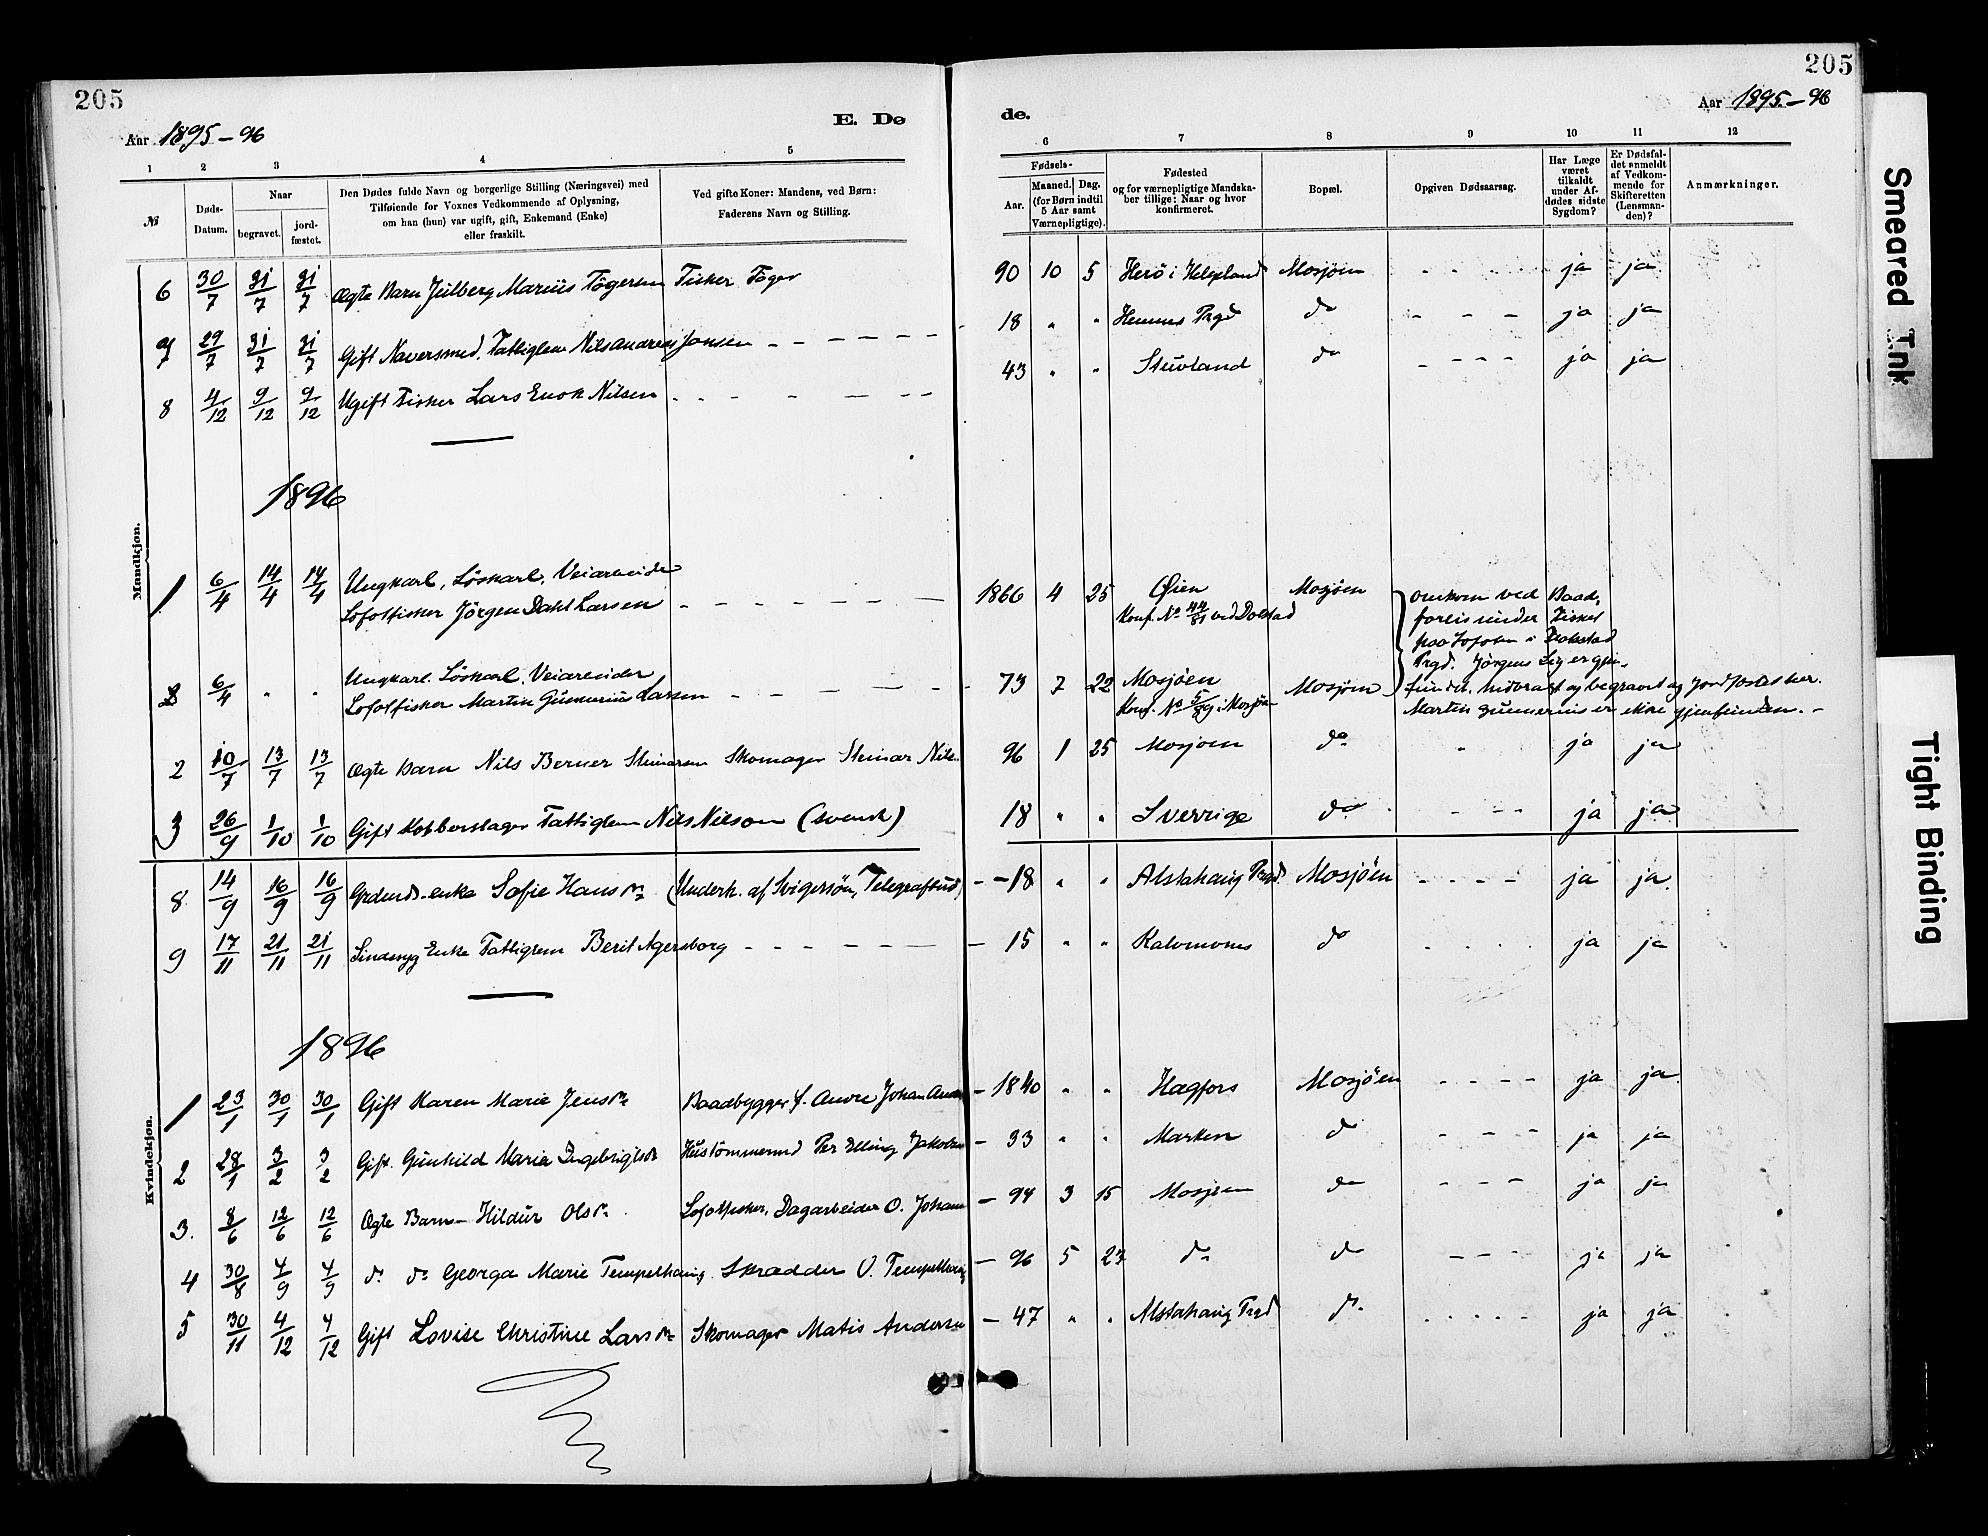 205
205
Aar 1895-96
E. Dø
de.
Aar 1895-96
1 2 3 4 5
6 7 8 9 10 11 12
№
Døds-Datum.
Naar
begravet.
jord-fæstet.
Den Dødes fulde Navn og borgerlige Stilling (Næringsvei) med
Tilføiende for Voxnes Vedkommende af Oplysning,
om han (hun) var ugift, gift, Enkemand (Enke)
eller fraskilt.
Ved gifte Koner: Mandens, ved Børn:
Faderens Navn og Stilling.
Fødsels-
Aar.
Maaned. Dag.
(for Børn indtil
5 Aar samt
Værnepligtige).
Fødested
og for værnepligtige Mandska-
ber tillige: Naar og hvor
konfirmeret.
Bopæl.
Opgiven Dødsaarsag.
Har Læge
været
tilkaldt
under Af-
dødes sidste
Sygdom?
Er Dødsfal-
det anmeldt
af Vedkom-
mende for
Skifteretten
(Lensman-
den)?
Anmærkninger.
Mandkjøn.
6 30/7 31/7 31/7 Ægte Barn Julberg Marius Tögersen Fisker Töger 90 10 5 Herö i Helgeland Mosjöen - - - - ja ja
7 29/7 31/7 31/7 Gift Naversmed, Fattiglem Nils Andreas Jonsen - - - - - - 18 " " Hemnes Prgd do - - - ja ja
8 4/12 9/12 9/12 Ugift Fisker Lars Enok Nilsen - - - - - - 43 " " do - - - - ja ja
1896
1 6/4 14/4 14/4 Ungkarl, Löskarl, Veiarbeider
Lofotfisker Jörgen Dahl Larsen - - - - - - 1866 4 25 Øien
Konf. No 44/81 ved Dolstad
Mosjöen
omkom ved Baad-
forlis under Fisket
paa Lofoten i
Prgd. Jörgens Lig er gjen-
2 6/4 " " Ungkarl. Löskarl, Veiarbeider
Lofotfisker Martin Gunnerius Larsen - - - - - - 73 7 22 Mosjöen
Konf. No 5/89 i Mosjöen
Mosjöen
fundet, hidbragt og begravet og jordfæstet her.
Martin Gunnerius er ikke gjenfunden. -
2 10/7 13/7 13/7 Ægte Barn Nils Berner Steinarsen Skomager Steinar Nils. 96 1 25 Mosjöen do " ja ja
3 26/9 1/10 1/10 Gift Kobberslager Fattiglem Nils Nilson (svensk) 18 " " Sverrige do - - - ja ja
Kvindekjøn.
8 14/9 16/9 16/9 enke Sofie Hansdr (Underh. af Svigersön, Telegrafbud) - - 18 " " Alstahaug Prgd. Mosjöen - - - - ja ja.
9 17/11 21/11 21/11 Enke Fattiglem Berit Agersborg - - - - - - - 15 " " do . . . . ja ja
1896
1 23/1 30/1 30/1 Gift Karen Marie Jensdr Baadbygger f. Johan - 1840 " " Hagfors Mosjöen - - - - ja ja
2 28/1 3/2 3/2 Gift. Gunhild Marie Ingebrigtsdr Hustömmermd Per Elling Jakobsen - 33 " " Marken do - - - - ja ja
3. 8/6 12/6 12/6 Ægte Barn - Hildur Olsdr. Lofotfisker, Dagarbeider O. Johan - 94 3 15 Mosjöen do - - - - ja ja
4 30/8 4/9 4/9 do do Georga Marie Tempelhaug. Skrædder O. Tempelhaug - 96 5 23 do do - - - - ja ja
5 30/11 4/12 4/12 Gift Lovise Christine Larsdr Skomager Matis Andersen - 47 " " Alstahaug Prgd do . . . . . ja ja
Smeared Ink
Tight Binding